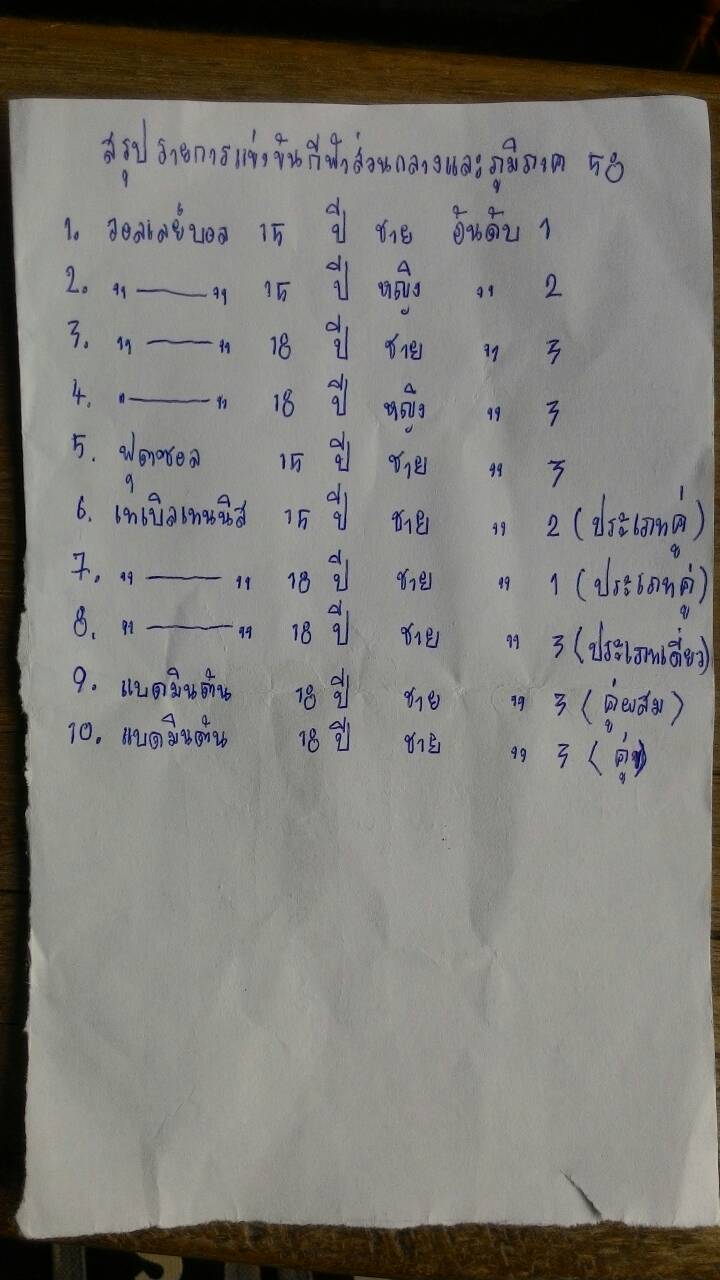 สรุปรายการแข่งขันกีฬาส่วนกลางและภูมิภาค 58
1. วอลเลย์บอล 15 ปี ชาย อันดับ 1
2. " —— " 15 ปี หญิง " 2
3. " —— " 18 ปี ชาย " 3
4. " —— " 18 ปี หญิง " 3
5. ฟุตซอล 15 ปี ชาย " 3
6. เทเบิลเทนนิส 15 ปี ชาย " 2 (ประเภทคู่)
7. " —— " 18 ปี ชาย " 1 (ประเภทคู่)
8. " —— " 18 ปี ชาย " 3 (ประเภทเดี่ยว)
9. แบดมินตัน 18 ปี ชาย " 3 (คู่ผสม)
10. แบดมินตัน 18 ปี ชาย " 3 (คู่)